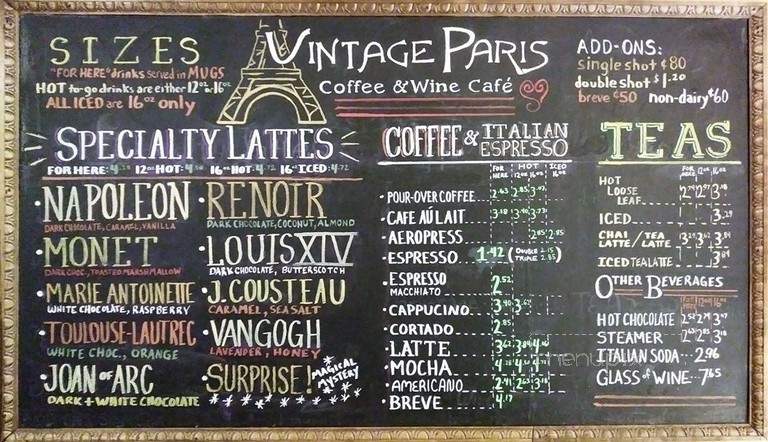 SIZES
"FOR HERE" drinks served in MUGS
HOT to-go drinks are either 12oz or 16oz
ALL ICED are 16oz only
VINTAGE PARIS
Coffee & Wine Café
ADD-ONS:
single shot ¢80
double shot $1.20
breve ¢50 non-dairy ¢60
SPECIALTY LATTES
FOR HERE: 12oz HOT: 16oz HOT: 4.72 16oz ICED: 4.72
NAPOLEON
DARK CHOCOLATE, CARAMEL, VANILLA
MONET
DARK CHOC., TOASTED MARSHMALLOW
MARIE ANTOINETTE
WHITE CHOCOLATE, RASPBERRY
TOULOUSE-LAUTREC
WHITE CHOC., ORANGE
JOAN OF ARC
DARK + WHITE CHOCOLATE
RENOIR
DARK CHOCOLATE, COCONUT, ALMOND
LOUIS XIV
DARK CHOCOLATE, BUTTERSCOTCH
J. COUSTEAU
CARAMEL, SEA SALT
VANGOGH
LAVENDER, HONEY
SURPRISE!
MAGICAL
MYSTERY
COFFEE & ITALIAN
ESPRESSO
FOR HERE HOT 12oz 16oz ICED 16oz
POUR-OVER COFFEE 2.63 2.85
CAFE AÚ LAIT 3.18 3.40 3.73
AEROPRESS 2.85 2.85
ESPRESSO 1.42 (DOUBLE 2.15
TRIPLE 2.85)
ESPRESSO
MACCHIATO 2.52
CAPPUCINO 3.40 3.62
CORTADO 2.85
LATTE
MOCHA
AMERICANO 2.41 2.63 3.18
BREVE 4.17
TEAS
FOR HERE 12oz 16oz
HOT
LOOSE
LEAF
ICED 3.29
CHAI / TEA
LATTE / LATTE 3.29 3.62 3.84
ICED TEA LATTE 3.84
OTHER BEVERAGES
HOT CHOCOLATE 2.52 2.74 3.07
STEAMER 2.63 2.85 3.18
ITALIAN SODA 2.96
GLASS OF WINE 7.65